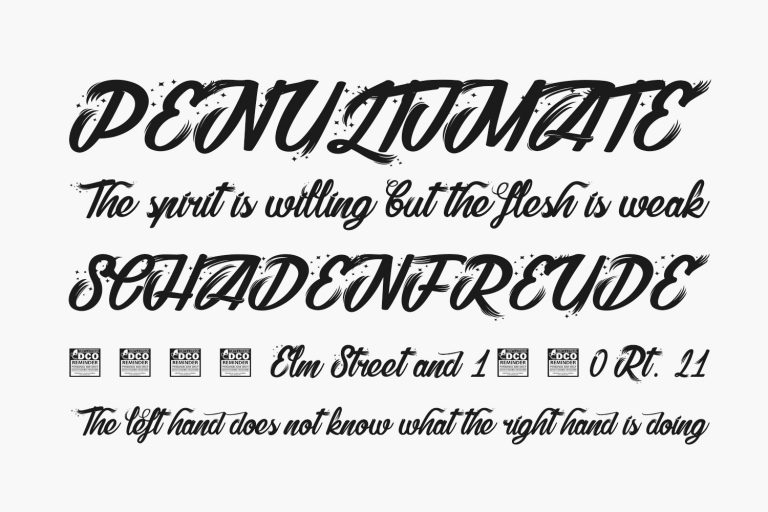 PENULTIMATE
The spirit is willing but the flesh is weak
SCHADENFREUDE
DCO REMINDER DCO REMINDER DCO REMINDER DCO REMINDER Elm Street and 1 DCO REMINDER DCO REMINDER 0 Rt. 21
The left hand does not know what the right hand is doing